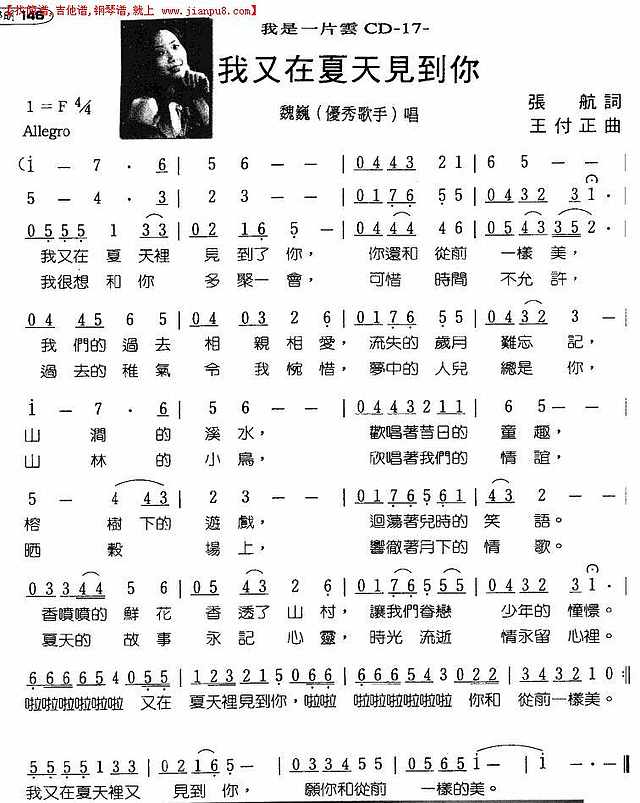 【找简谱,吉他谱,钢琴谱,就上 www.jianpu8.com】
146
我是一片雲 CD-17-
我又在夏天見到你
1 = F 4/4
張 航 詞
魏巍 (優秀歌手) 唱
Allegro
王付正 曲
(i - 7 · 6 | 5 6 - - | 0 4 4 3 2 1 | 6 5 - - |
5 - 4 · 3 | 2 3 - - | 0 1 7 6 5 5 | 0 4 3 2 3 1 · |
0 5 5 5 1 3 3 | 0 2 1 6 5 - | 0 4 4 4 4 6 | 0 5 4 3 3 5 2 · |
我又在 夏 天裡 見 到了 你, 你還和 從前 一樣 美,
我很想 和 你 多 聚一 會, 可惜 時間 不允 許,
0 4 4 5 6 5 | 0 4 0 3 2 6 | 0 1 7 6 5 5 | 0 4 3 2 3 - |
我 們的 過 去 相 親 相 愛, 流失的 歲月 難忘 記,
過 去的 稚 氣 令 我 惋 惜, 夢中的 人兒 總是 你,
i - 7 · 6 | 5 6 - - | 0 4 4 3 2 1 1 | 6 5 - - |
山 澗 的 溪 水, 歡唱著昔日的 童 趣,
山 林 的 小 鳥, 欣唱著我們的 情 誼,
5 - 4 4 3 | 2 3 - - | 0 1 7 6 5 6 1 | 4 3 2 - - |
榕 樹 下的 遊 戲, 迴蕩著兒時的 笑 語。
晒 穀 場 上, 響徹著月下的 情 歌。
0 3 3 4 4 5 6 | 0 5 4 3 2 6 | 0 1 7 6 5 5 | 0 4 3 2 3 1 · |
香噴噴的 鮮 花 香 透了 山 村, 讓我們眷戀 少年的 憧憬。
夏天的 故 事 永 記 心 靈, 時光 流逝 情永留 心裡。
6 6 6 6 5 4 0 5 5 | 1 2 3 2 1 5 0 6 6 | 6 6 6 6 5 4 3 0 2 2 | 3 4 3 2 1 0 :||
啦啦啦啦啦啦 又在 夏天裡見到你,啦啦 啦啦啦啦啦啦 你和 從前一樣美。
5 5 5 5 1 3 3 | 0 2 1 6 5 - | 0 3 3 4 5 5 | 0 5 6 5 i - | i - - ||
我又在夏天裡又 見到 你, 願你和從前 一樣的美。